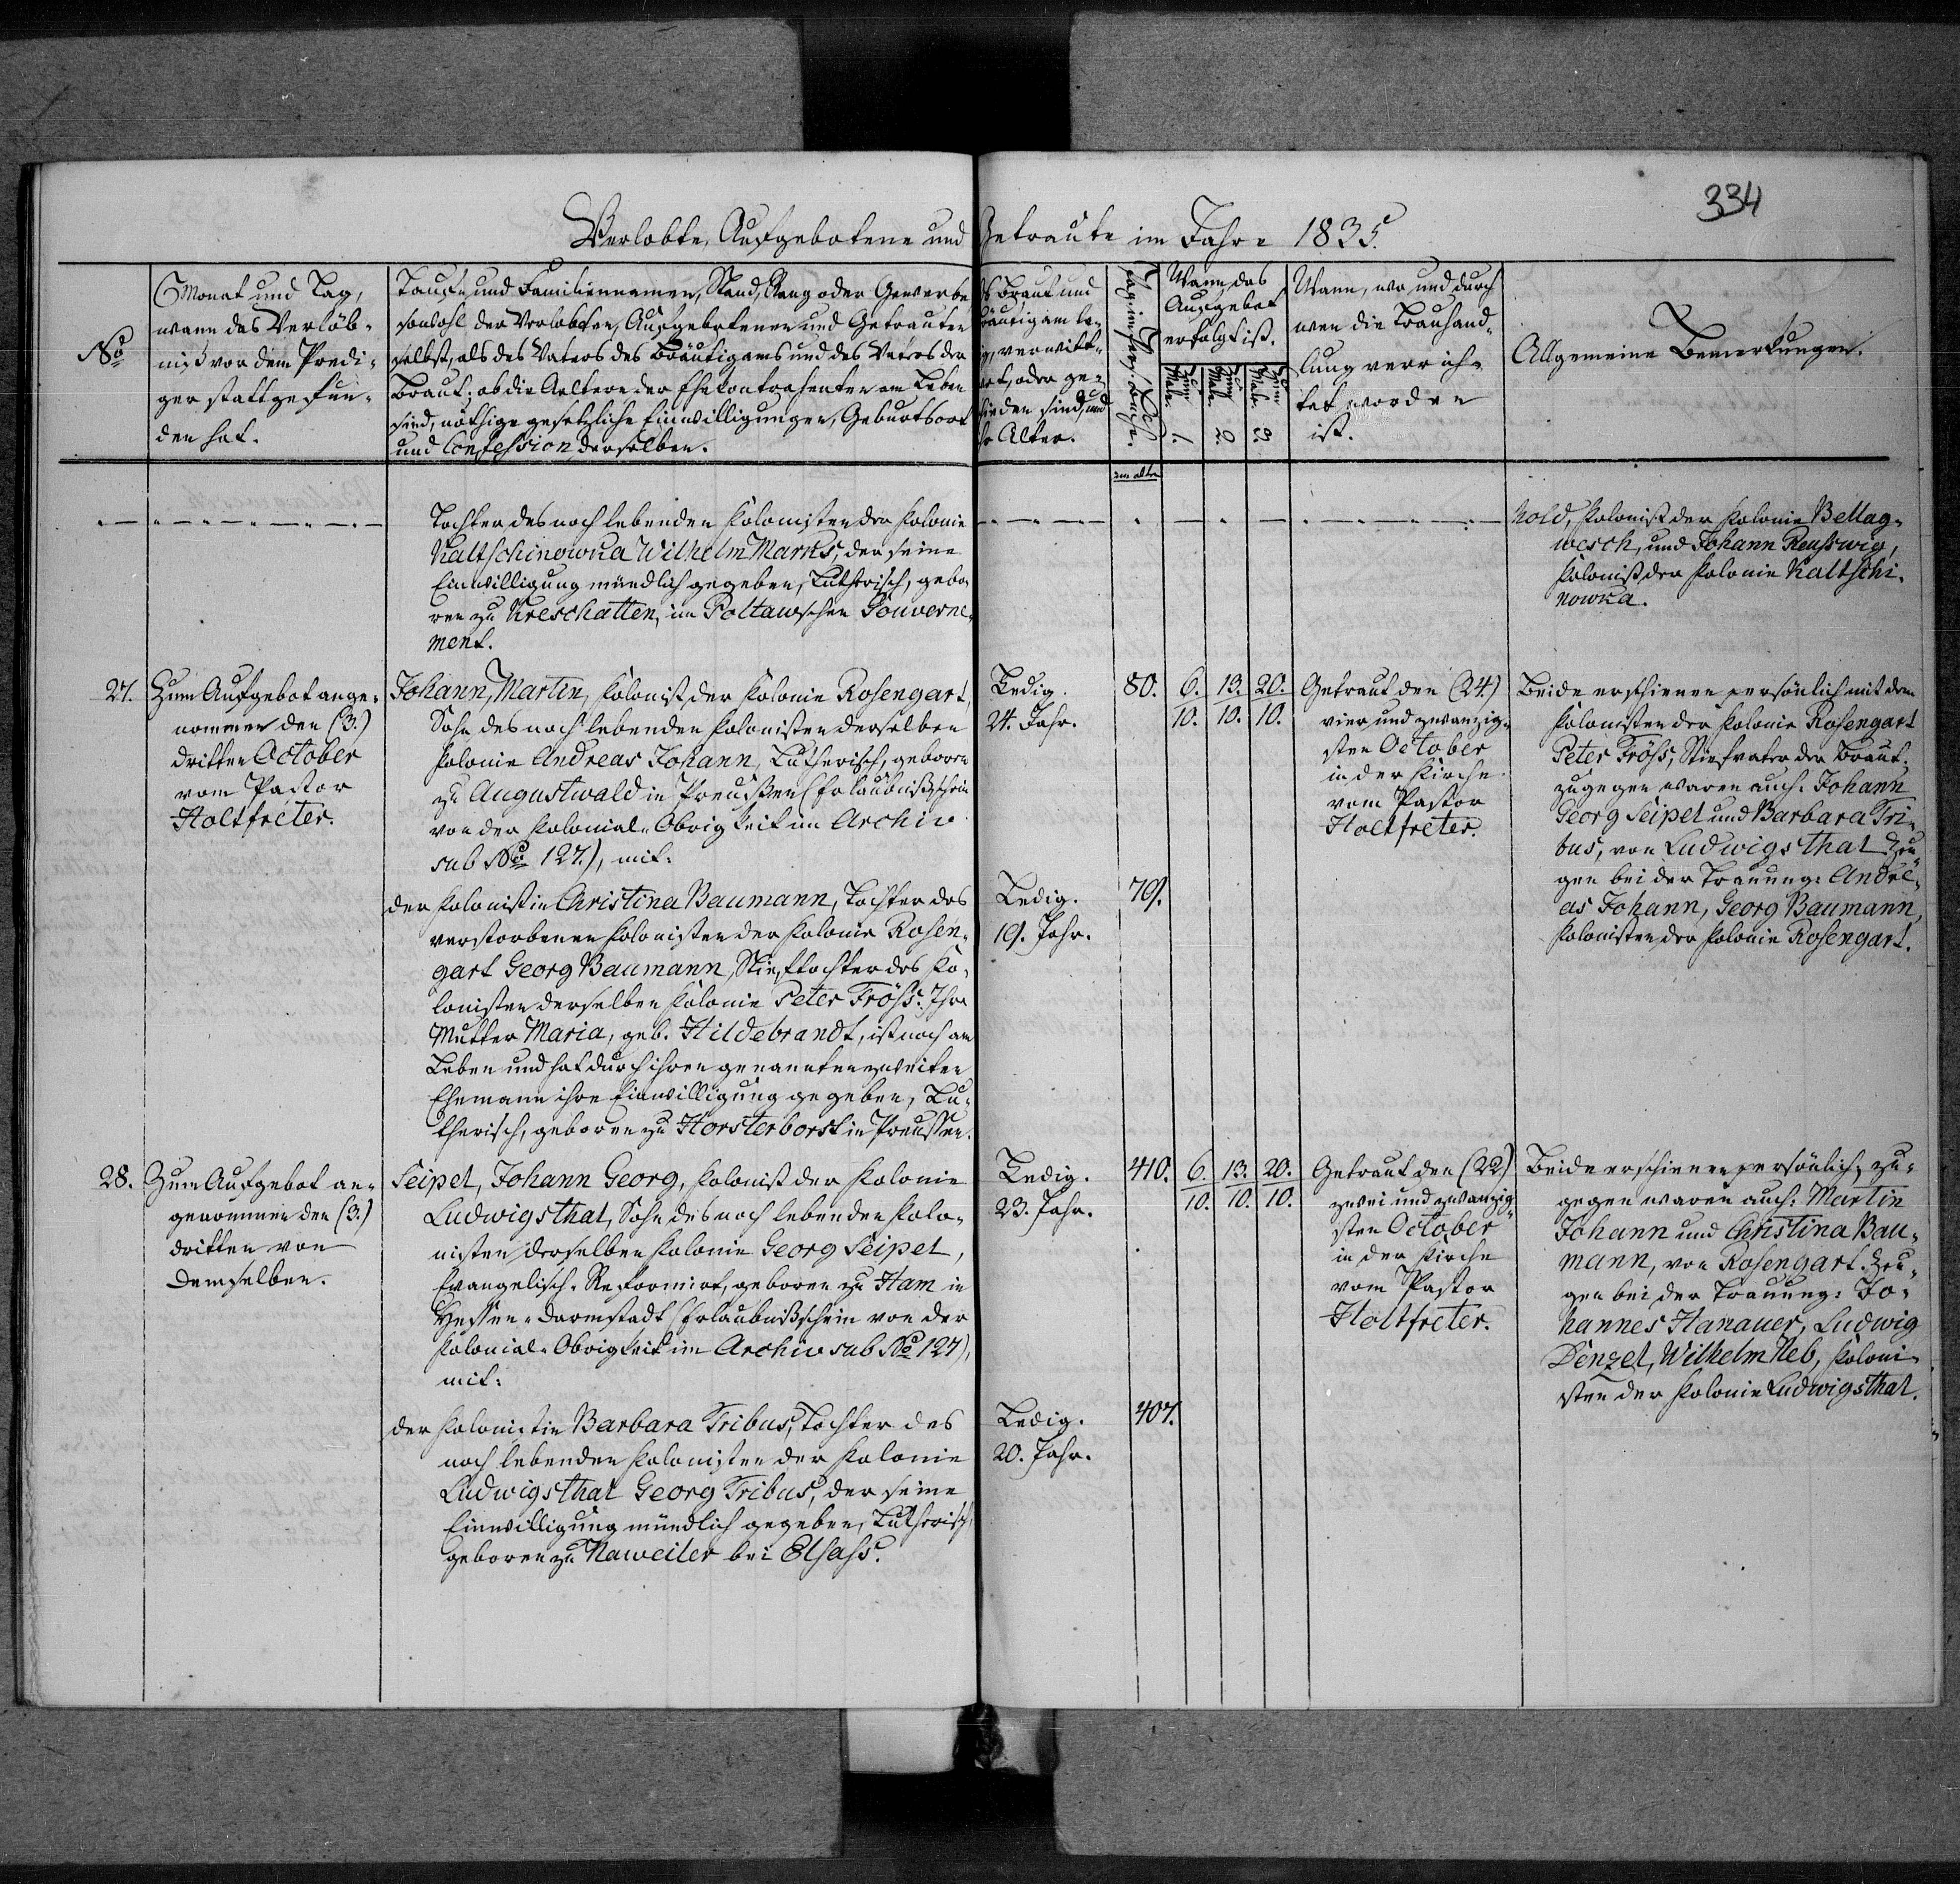 334
Verlobte, Aufgebotene und Getraute im Jahre 1835.
No
Monat und Tag,
wann das Verlöb-
niß vor dem Predi-
ger stattgefun-
den hat.
Tauf- und Familiennamen, Stand, Rang oder Gewerbe
sowohl der Verlobten, Aufgebotenen und Getrauten
selbst, als des Vaters des Bräutigams und des Vaters der
Braut; ob die Aeltern der Ehekontrahenten am Leben
sind, nöthige gesetzliche Einwilligungen, Geburtsort
und Confession derselben.
Braut und
äutigam le-
ig, verwitt-
wet, oder ge-
ieden sind, und
Alter.
Wann das
Aufgebot
erfolgt ist.
Zum Male. 1.
Zum Male. 2.
Zum Male. 3.
Wann, wo und durch
wen die Trauhand-
lung verrich-
tet worden
ist.
Allgemeine Bemerkungen.
Tochter des noch lebenden Kolonisten der Kolonie
Kaltschinowka Wilhelm Marks, der seine
Einwilligung mündlich gegeben, Lutherisch, gebo-
ren zu Kreschatten, im Poltawschen Gouverne-
ment.
hold, Kolonist der Kolonie Bellag-
wesch, und Johann Reusswig,
Kolonist der Kolonie Kaltschi-
nowka.
27.
Zum Aufgebot ange-
nommen den (3.)
dritten October
vom Pastor
Holtfreter.
Johann, Martin, Kolonist der Kolonie Rosengart,
Sohn des noch lebenden Kolonisten derselben
Kolonie Andreas Johann, Lutherisch, geboren
zu Augustwald in Preußen (Erlaubnißschein
von der Kolonial-Obrigkeit im Archiv
sub No 127.), mit:
der Kolonistin Christina Baumann, Tochter des
verstorbenen Kolonisten der Kolonie Rosen-
gart Georg Baumann, Stieftochter des Ko-
lonisten derselben Kolonie Peter Fröss. Ihre
Mutter Maria, geb. Hildebrandt, ist noch am
Leben und hat durch ihren genannten zweiten
Ehemann ihre Einwilligung gegeben, Lu-
therisch, geboren zu Horsterborst in Preussen.
Ledig.
24. Jahr.
80.
6. 13. 20.
10. 10. 10.
Ledig.
19. Jahr.
79.
Getraut den (24.)
vier und zwanzig-
sten October
in der Kirche
vom Pastor
Holtfreter.
Beide erschienen persönlich mit dem
Kolonisten der Kolonie Rosengart
Peter Fröss, Stiefvater der Braut.
zugegen waren auch: Johann
Georg Seipel und Barbara Tri-
bus, von Ludwigsthal Zeu-
gen bei der Trauung: Andre-
as Johann, Georg Baumann,
Kolonisten der Kolonie Rosengart.
28.
Zum Aufgebot an-
genommen den (3.)
dritten von
demselben.
Seipel, Johann Georg, Kolonist der Kolonie
Ludwigsthal, Sohn des noch lebenden Kolo-
nisten derselben Kolonie Georg Seipel,
Evangelisch-Reformirt, geboren zu Ham in
Hessen-Darmstadt (Erlaubnißschein von der
Kolonial-Obrigkeit im Archiv sub No 127),
mit:
der Kolonistin Barbara Tribus, Tochter des
noch lebenden Kolonisten der Kolonie
Ludwigsthal Georg Tribus, der seine
Einwilligung mündlich gegeben, Lutherisch,
geboren zu Naweiler bei Elsass.
Ledig.
23. Jahr.
410.
6. 13. 20.
10. 10. 10.
Ledig.
20. Jahr.
407.
Getraut den (22)
zwei und zwanzig-
sten October
in der Kirche
vom Pastor
Holtfreter.
Beide erschienen persönlich, zu-
gegen waren auch: Martin
Johann und Christina Bau-
mann, von Rosengart. Zeu-
gen bei der Trauung: Jo-
hannes Hanauer, Ludwig
Denzel, Wilhelm Heb, Koloni-
sten der Kolonie Ludwigsthal.